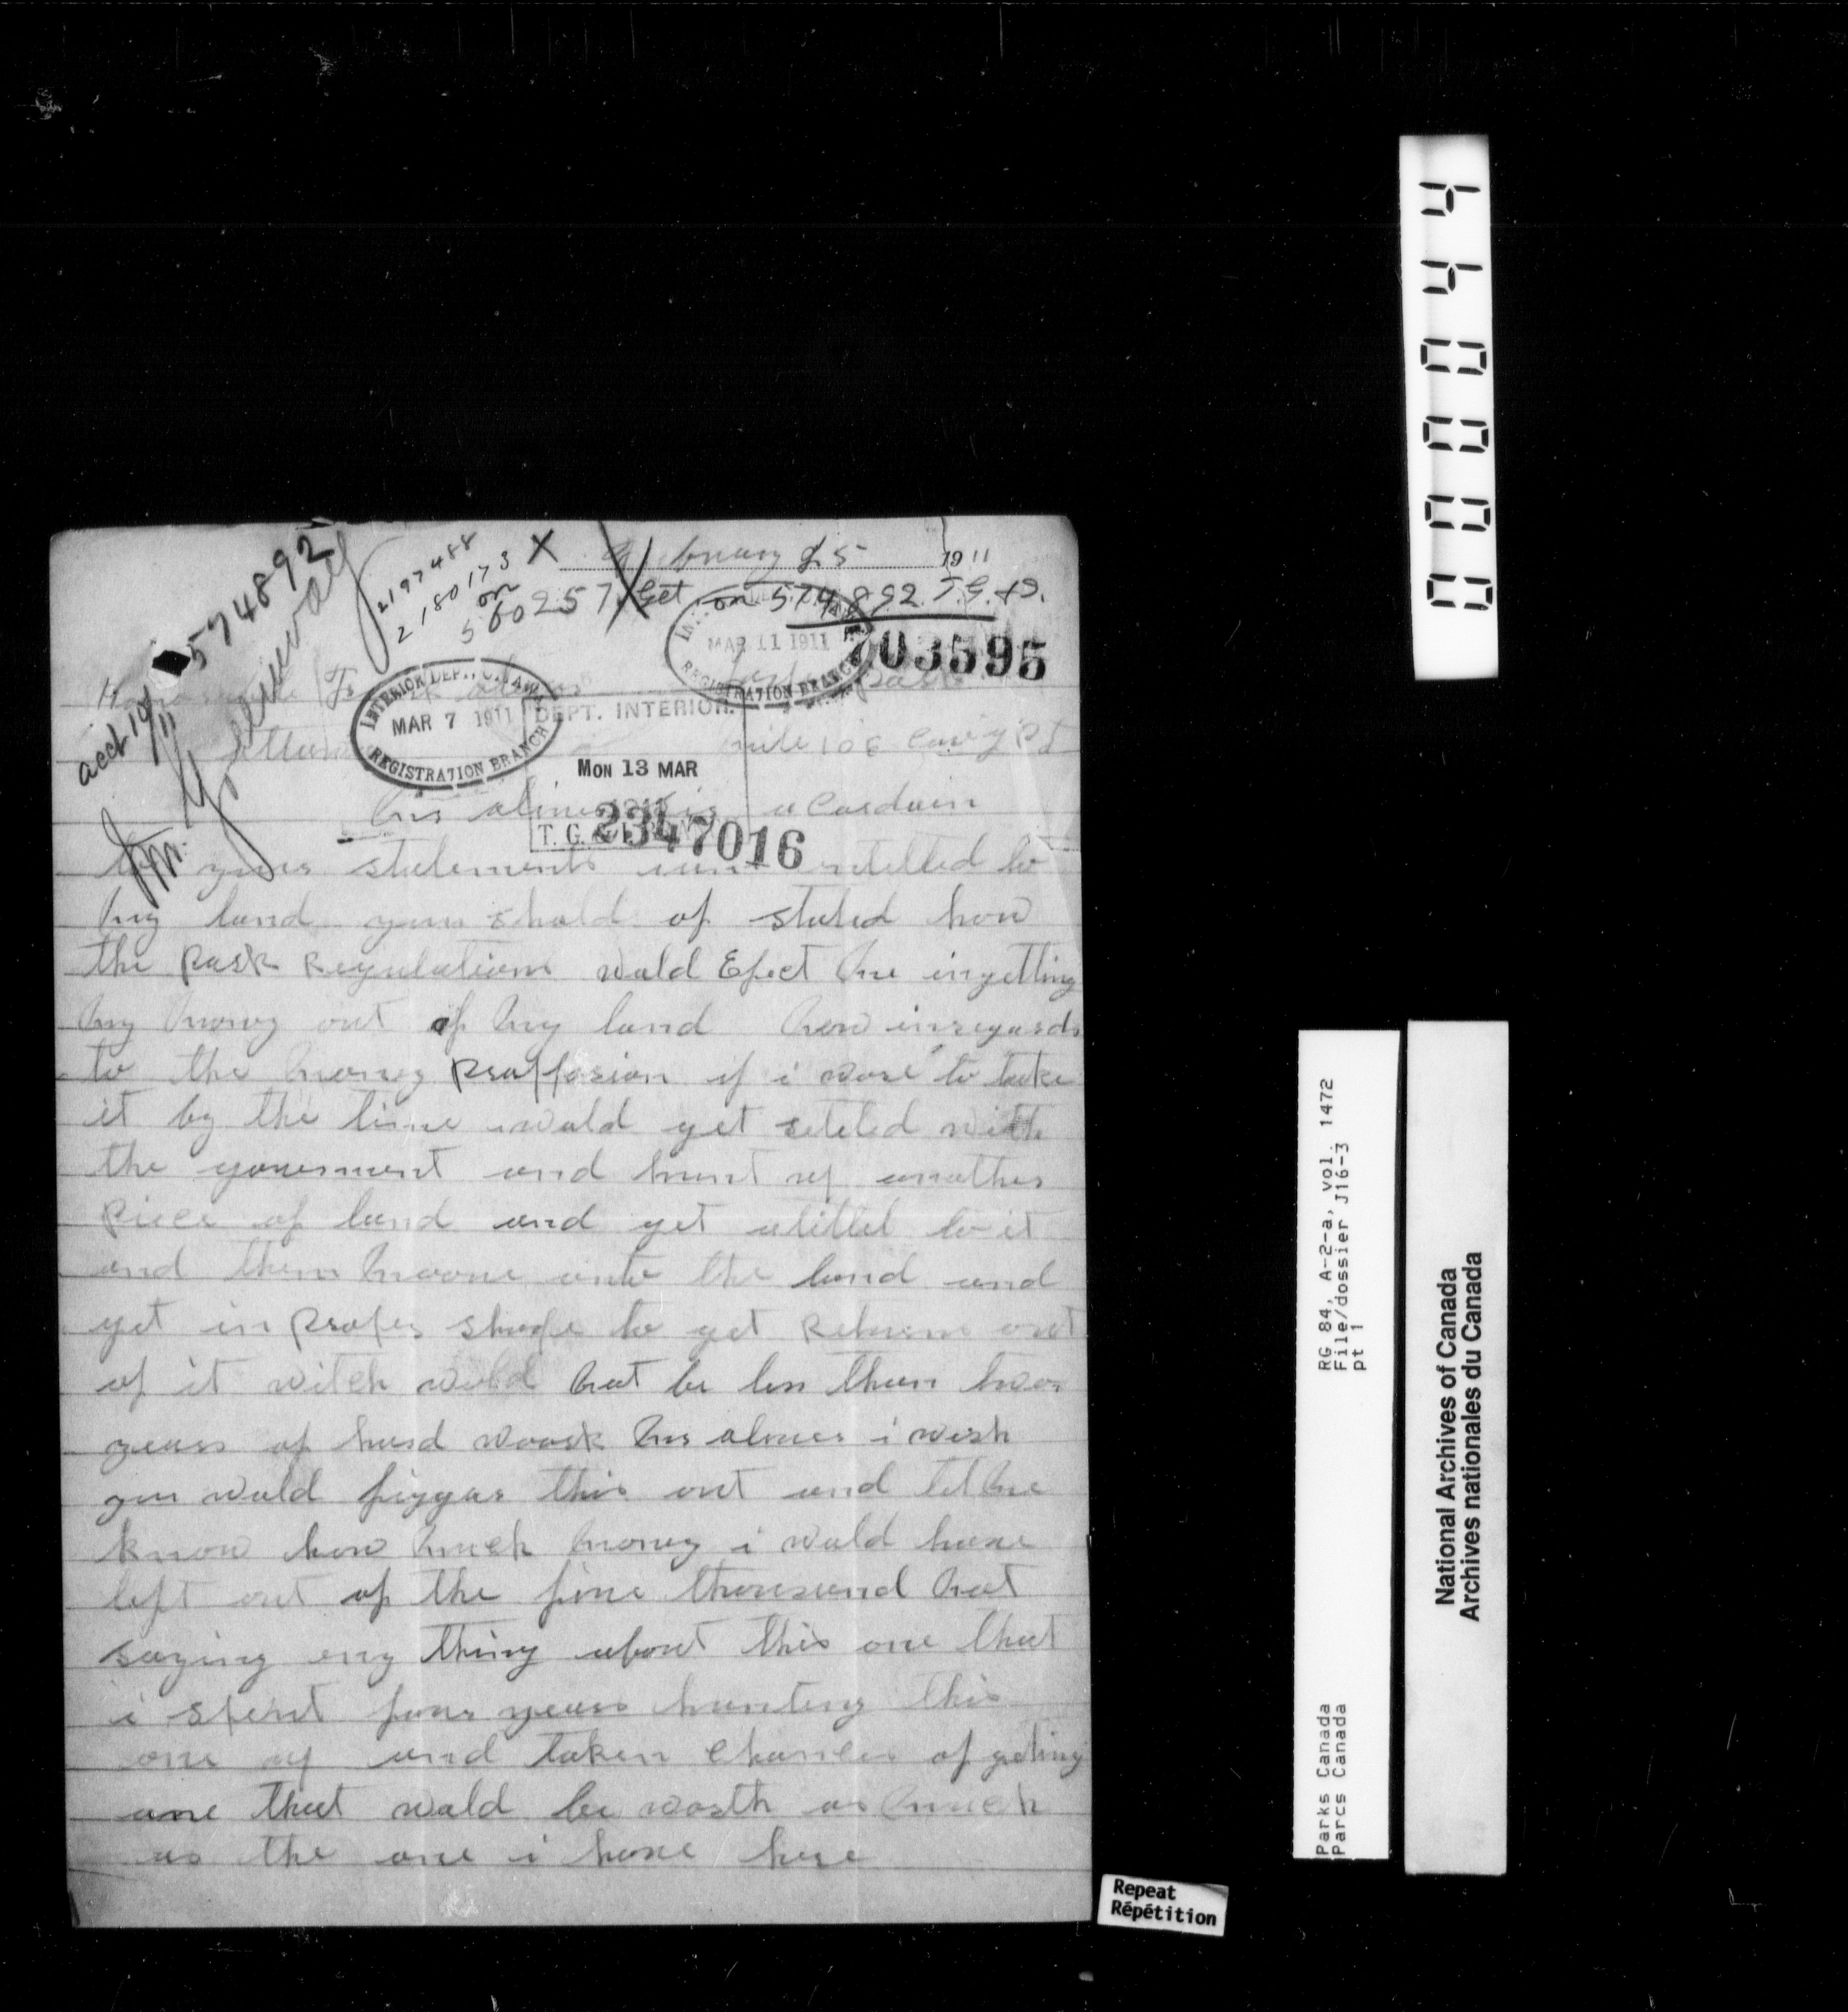 February 25 1911
2197488
2180173
on
560257 Get on 574892 T.G. & S.
574892
acct 19/11
INTERIOR DEPT., OTTAWA
MAR 11 1911
REGISTRATION BRANCH
703595
Honourable Frank
INTERIOR DEPT., OTTAWA
MAR 7 1911
REGISTRATION BRANCH
DEPT. INTERIOR.
MON 13 MAR
2347016
mile 108
acordain
to youre statements entitled to
my land you shold of stated how
the Park Regulations wuld Efect me in getting
my money out of my land now in regards
to the money Propposion if i wore to take
it by the time i wuld get seteled with
the government and hunt up another
Piece of land and get a titel to it
and then moove onto the land and
get in Proper shape to get Returns out
of it witch wuld not be less than two
years of hard woork i wish
you wuld figgar this out and let me
know how much money i wuld have
left out of the five thousand not
saying eny thing about this one that
i spent four years hunting this
one up and taken chances of geting
one that wuld be worth as much
as the one i have here
44000
0000 44
RG 84, A-2-a, vol. 1472
File/dossier J16-3
pt 1
Parks Canada
Parcs Canada
National Archives of Canada
Archives nationales du Canada
Repeat
Répétition